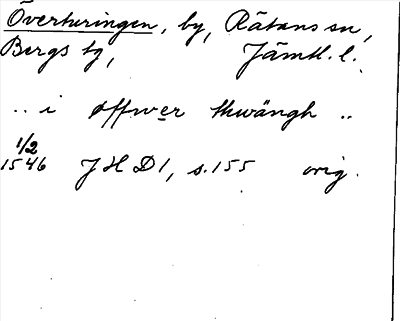 Överturingen, by, Rätans sn,
Bergs tg, Jämtl. l.
.. i øffwer thwängh ..
1/2
1546 JHD 1, s. 155 orig.